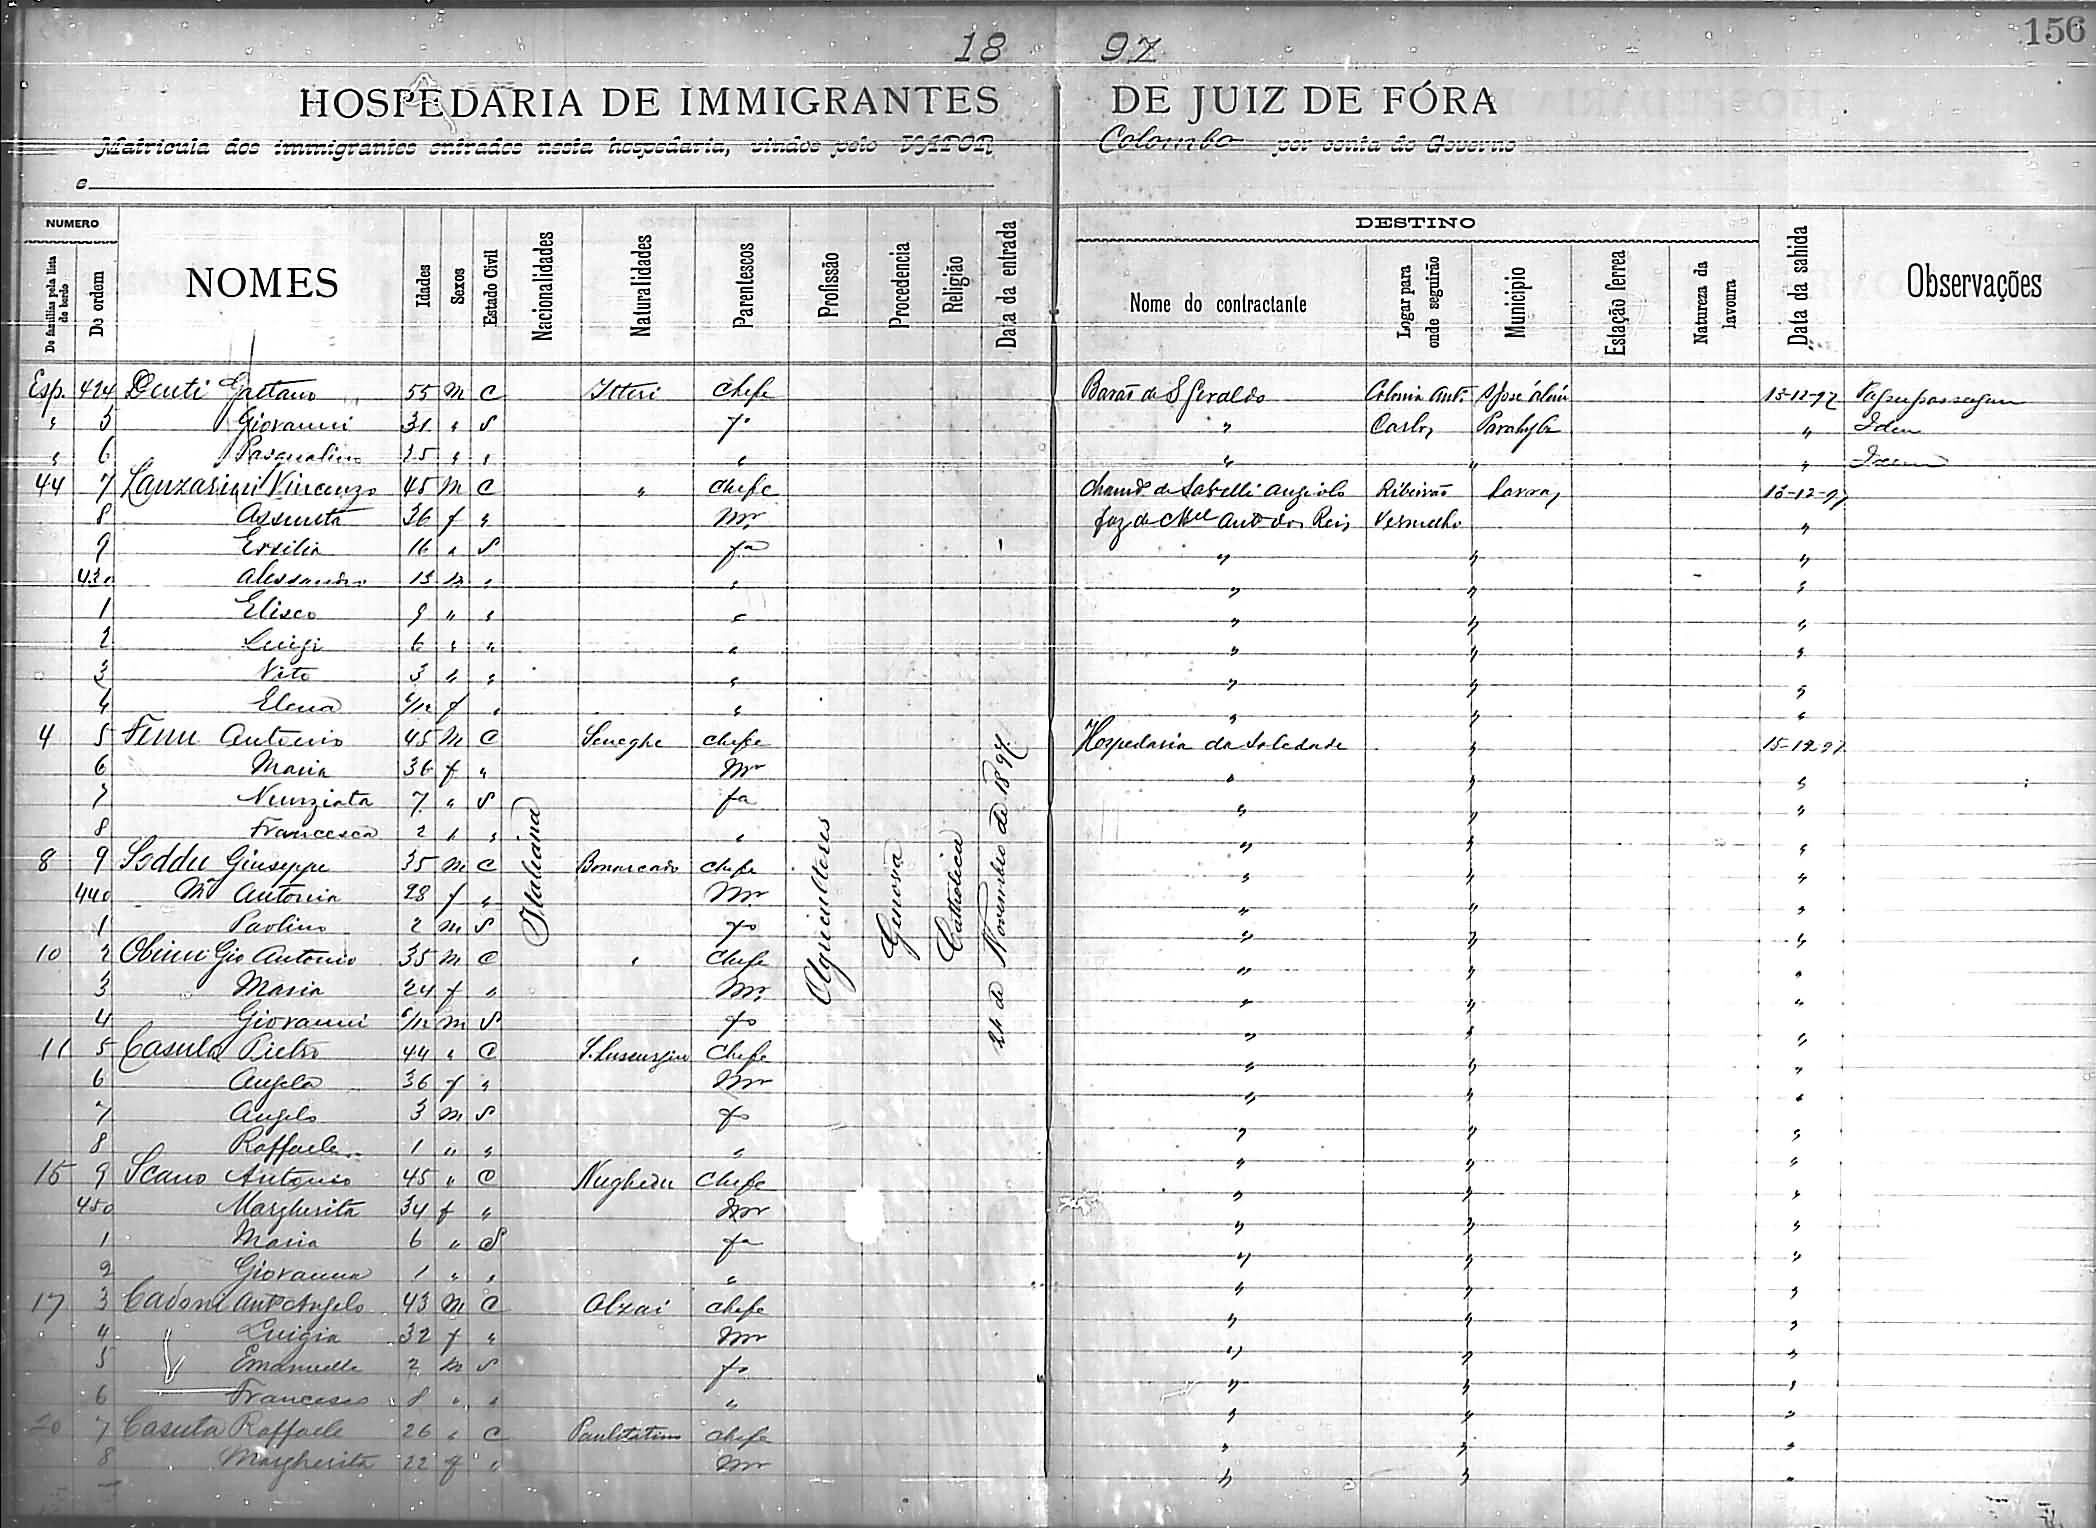 156
18 97
HOSPEDARIA DE IMMIGRANTES DE JUIZ DE FÓRA
Matricula dos immigrantes entrados nesta hospedaria, vindos pelo VAPOR Colombo por conta do Governo
e
NUMERO DESTINO
De familias pela lista de bordo De ordem NOMES Idades Sexos Estado Civil Nacionalidades Naturalidades Parentescos Profissão Procedencia Religião Data da entrada Nome do contractante Logar para onde seguirão Municipio Estação ferrea Natureza da lavoura Data da sahida Observações
Italiana Agricultores Genova Catholica 24 de Novembro de 1897
Esp. 424 Deuti Gaetano 55 M C Itteri Chefe Barão de S Geraldo Colonia Ant. S José Além 13-12-97
" 5 Giovanni 31 " S fo " Carlos Parahyba " Idem
" 6 Pasqualino 25 " " " " " " Idem
44 7 Lanzarini Vincenzo 45 M C " Chefe Angiolo Ribeirão Lavras 13-12-97
8 Assunta 36 f " Mr faz de Mel Anto dos Reis Vermelho "
9 Ersilia 16 " S fa " " "
430 Alessandro 13 m " " " " "
1 Eliseo 9 " " " " " "
2 Luigi 6 " " " " " "
3 Vito 3 " " " " " "
4 Elena 6/12 f " " " " "
4 5 Fenu Antonio 45 M C Seneghe Chefe Hospedaria da Soledade " 15-12-97
6 Maria 36 f " Mr " " "
7 Nunziata 7 " S fa " " "
8 Francesca 2 " " " " " "
8 9 Soddu Giuseppe 35 m C Bonarcado Chefe " " "
440 Ma Antonia 28 f " Mr " " "
1 Paolino 2 m S fo " " "
10 2 Obinu Gio Antonio 35 M C " Chefe " " "
3 Maria 24 f " Mr " " "
4 Giovanni 6/12 m S fo " " "
11 5 Casula Pietro 44 " C S. Lussurgiu Chefe " " "
6 Angela 36 f " Mr " " "
7 Angelo 3 m S fo " " "
8 Raffaele 1 " " " " " "
15 9 Scano Antonio 45 " C Nughedu Chefe " " "
450 Margherita 34 f " Mr " " "
1 Maria 6 " S fa " " "
2 Giovanna 1 " " " " " "
17 3 Cadoni Anto Angelo 43 M C Olzai Chefe " " "
4 Luigia 32 f " Mr " " "
5 Emanuelle 2 m S fo " " "
6 Francesco " " " " " "
20 7 Casula Raffaele 26 " C Paulilatino Chefe " " "
8 Margherita 22 f " Mr " " "